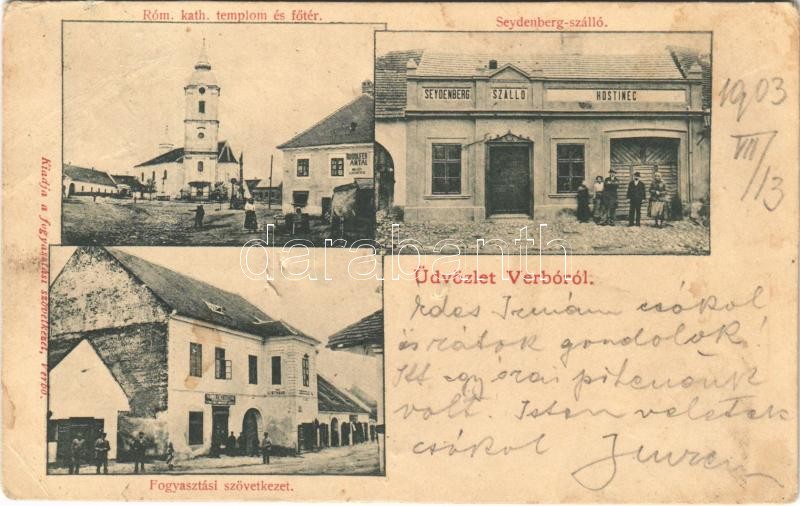 Róm. kath. templom és főtér.
Seydenberg-szálló.
SEYDENBERG SZÁLLÓ HOSTINEC
ANTAL
1903
VII/13
Kiadja a fogyasztási szövetkezet, Verbó.
darabanth.com
Üdvözlet Verbóról.
csókol
és rátok gondolok!
Itt egy órai pihenőnk
volt. Isten veletek
csókol
Fogyasztási szövetkezet.